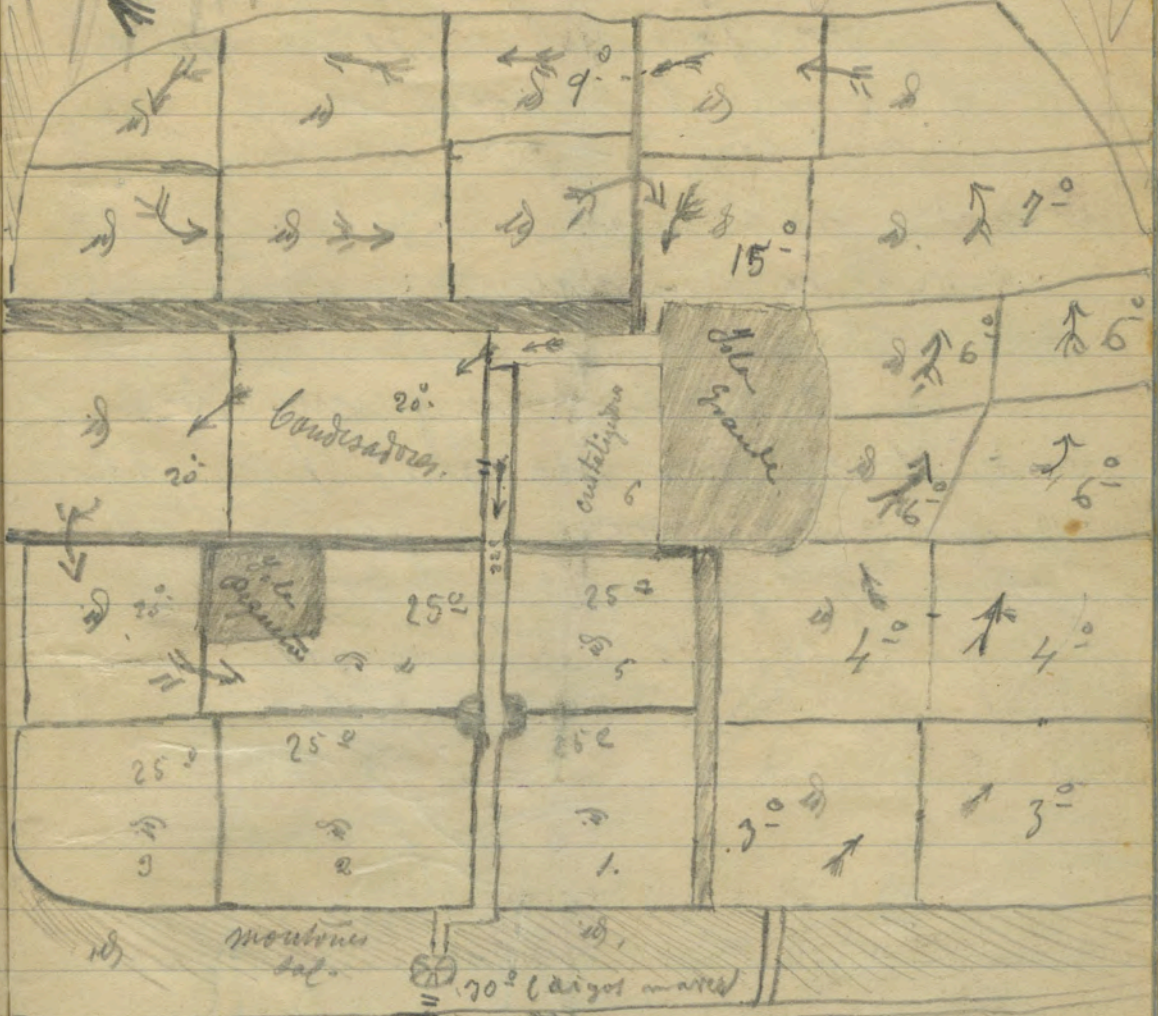 id id id 9º id id
id id id id 15º id 7º
Isla
Grande
id 6º 6º
id 20º
Condesadores. 20º
cristalizador
6
id 6º 6º
id 25º
Isla
Pequeña
25º
id 4
25º
id
5
id 4º 4º
25º
id
3
25º
id
2
25º
id
1.
3º id 3º
id
montones
sal.
id.
30º (aigos mares)